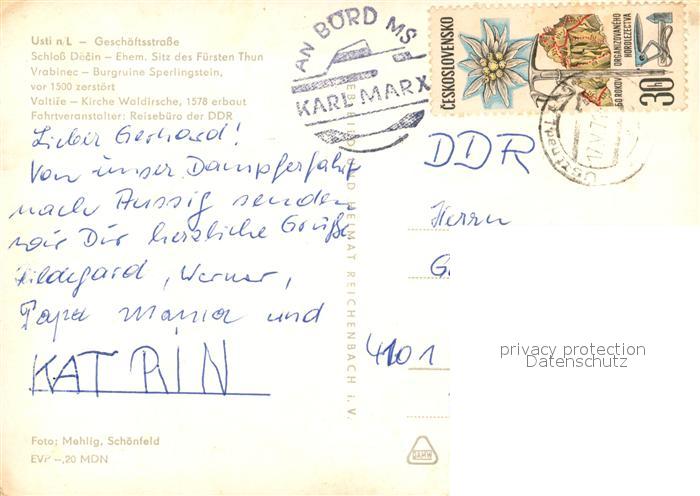 Usti n/L — Geschäftsstraße
Schloß Děčin — Ehem. Sitz des Fürsten Thun
Vrabinec — Burgruine Sperlingstein,
vor 1500 zerstört
Valtiře — Kirche Waldirsche, 1578 erbaut
Fahrtveranstalter: Reisebüro der DDR
Lieber Gerhard!
Von unser Dampferfahrt
nach Aussig senden
wir Dir herzliche Grüße
Hildegard, Werner,
Papa Mama und
KATRIN
Foto; Mehlig, Schönfeld
EVP —,20 MDN
BILD UND HEIMAT REICHENBACH i. V.
AN BORD MS
KARL MARX
ČESKOSLOVENSKO
ORGANIZOVANÉHO
HOROLEZECTVA
60 ROKOV
30h
DDR
Herrn
G
4101
privacy protection
Datenschutz
DAMW